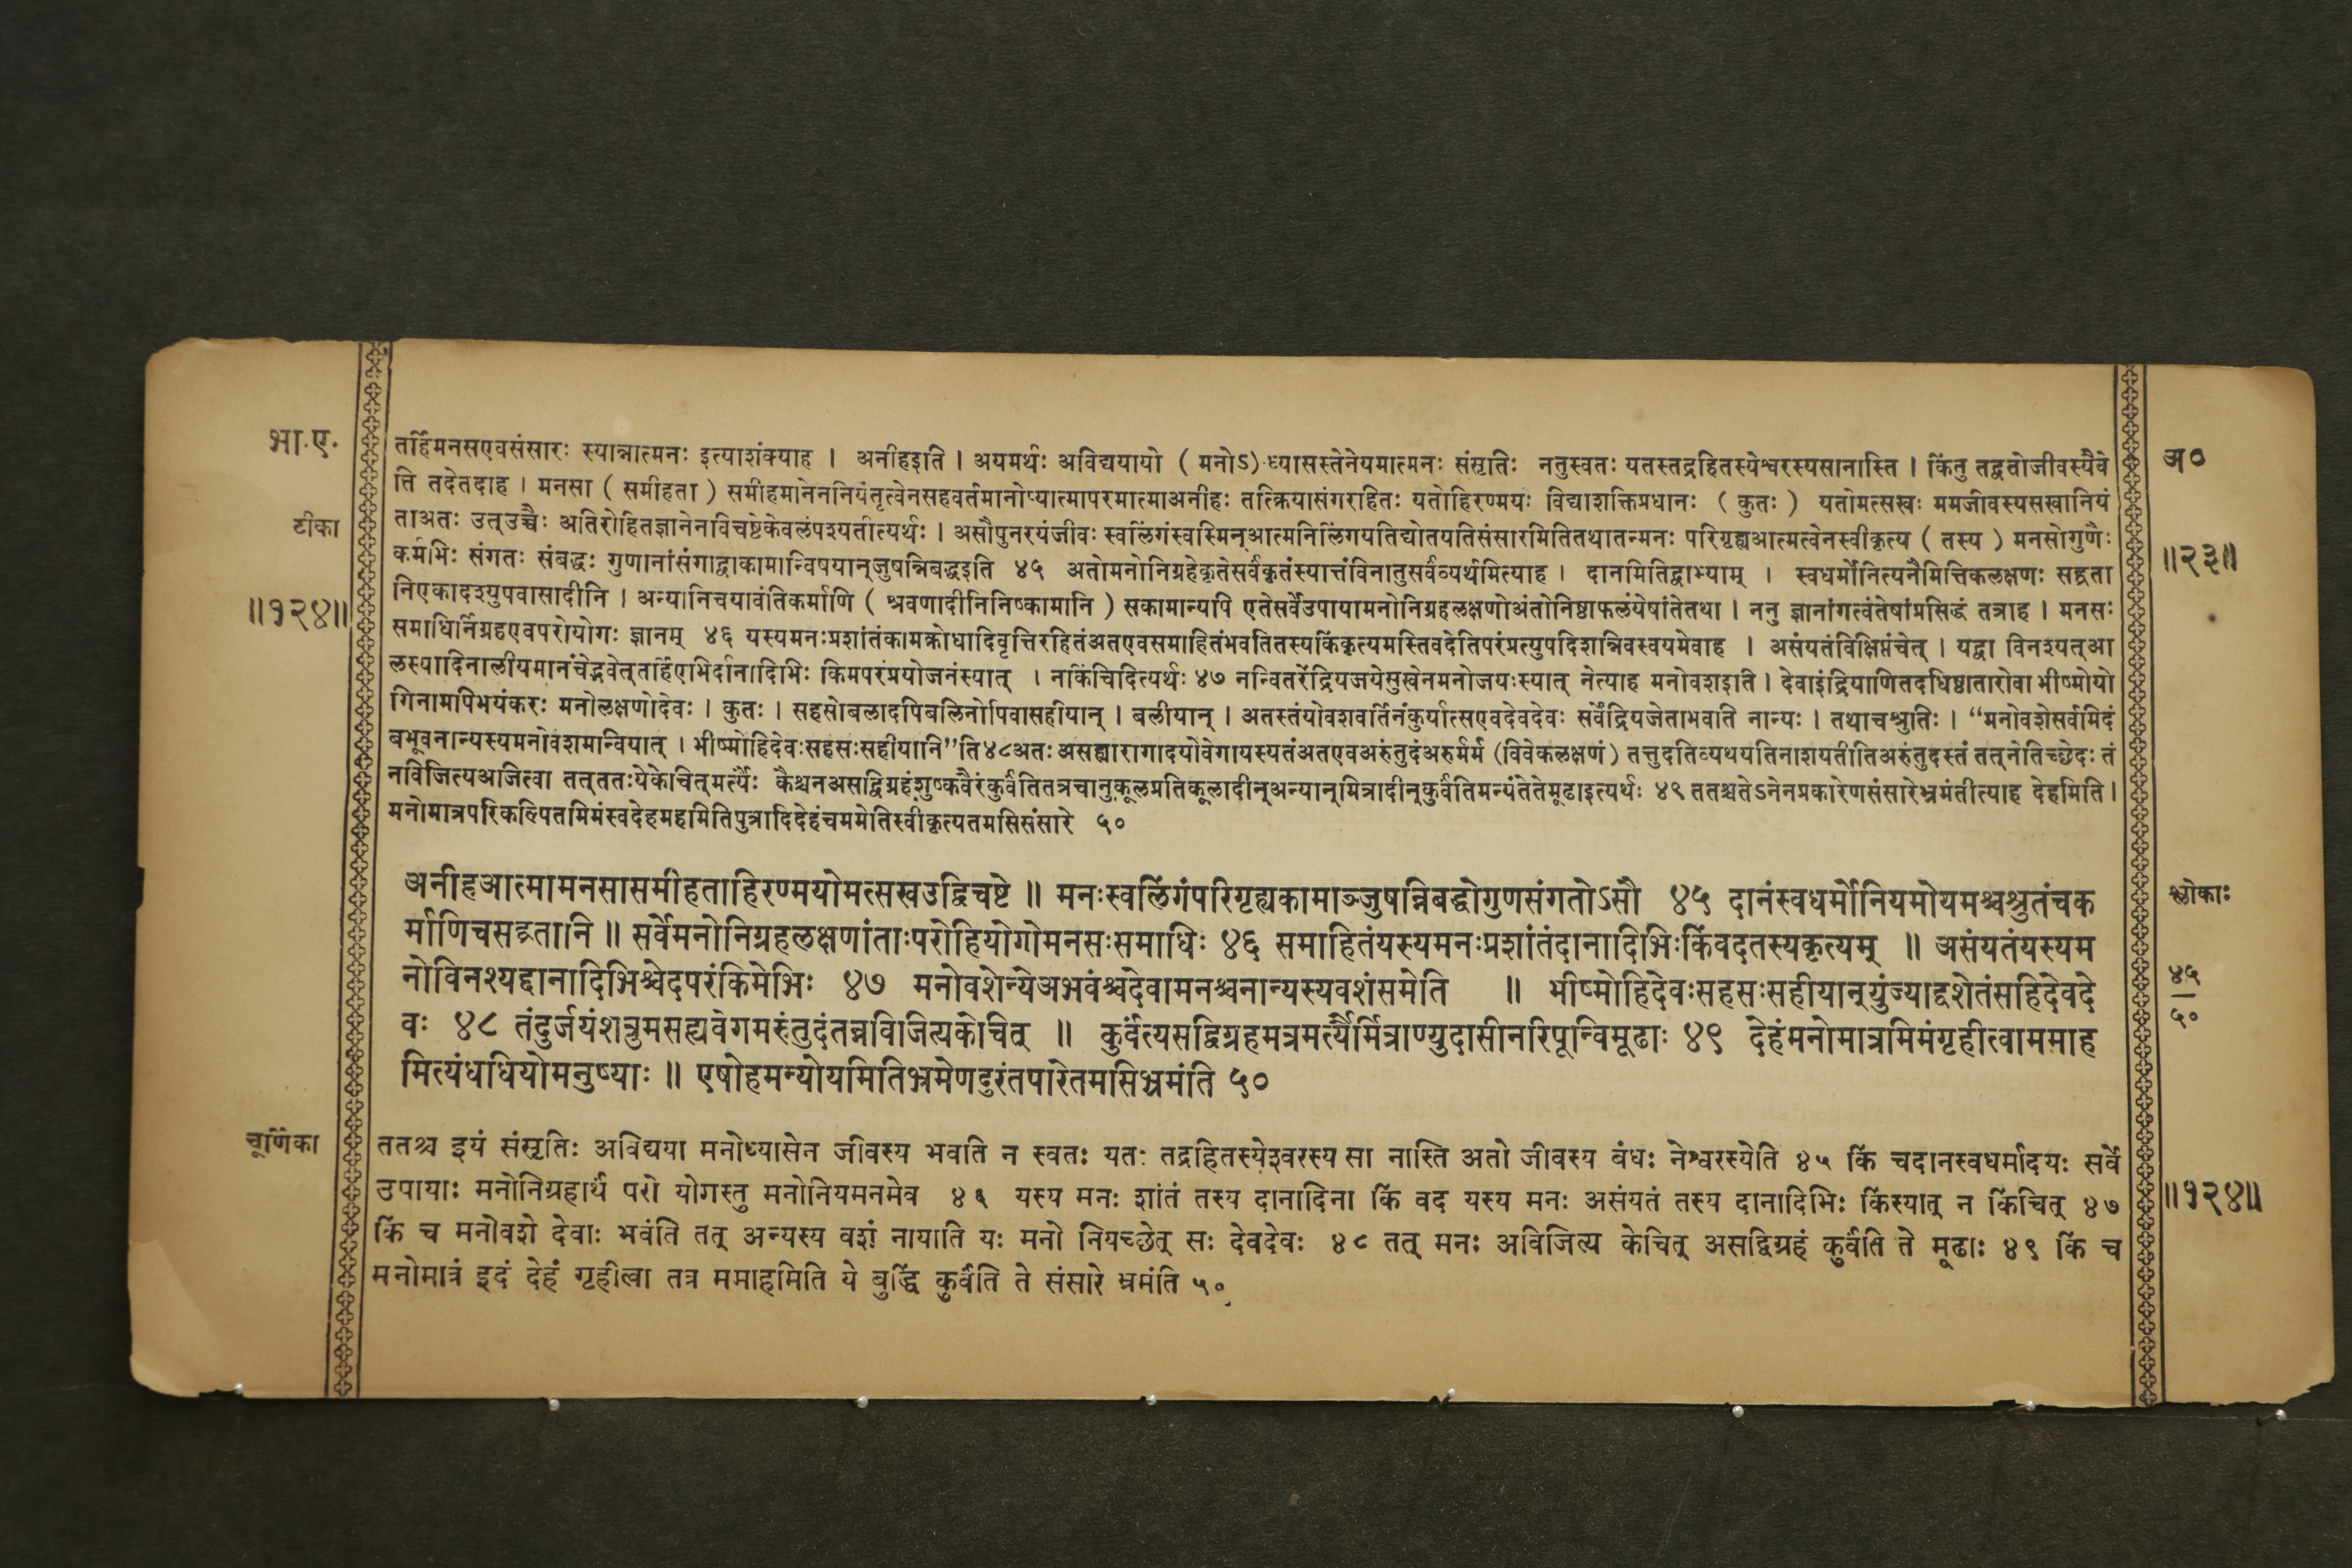 भा.ए.
तर्हिमनसएवसंसारः स्यान्नात्मनः इत्याशंक्याह । अनीहइति । अयमर्थः अविद्ययायो ( मनोऽ)ध्यासस्तेनेयमात्मनः संसृतिः नतुस्वतः यतस्तद्रहितस्येश्वरस्यसानास्ति । किंतु तद्वतोजीवस्यैवे
अ०
ति तदेतदाह । मनसा ( समीहता ) समीहमानेननियंतृत्वेनसहवर्तमानोप्यात्मापरमात्माअनीहः तत्क्रियासंगरहितः यतोहिरण्मयः विद्याशक्तिप्रधानः ( कुतः ) यतोमत्सखः ममजीवस्यसखानियं
टीका
ताअतः उत्उच्चैः अतिरोहितज्ञानेनविचष्टेकेवलंपश्यतीत्यर्थः । असौपुनरयंजीवः स्वलिंगंस्वस्मिन्आत्मनिलिंगयतिद्योतयतिसंसारमितितथातन्मनः परिगृह्यआत्मत्वेनस्वीकृत्य ( तस्य ) मनसोगुणैः
कर्मभिः संगतः संबद्धः गुणानांसंगाद्वाकामान्विषयान्जुषन्निबद्धइति ४५ अतोमनोनिग्रहेकृतेसर्वंकृतंस्यात्तंविनातुसर्वंव्यर्थमित्याह । दानमितिद्वाभ्याम् । स्वधर्मोनित्यनैमित्तिकलक्षणः सद्व्रता
॥२३॥
निएकादश्युपवासादीनि । अन्यानिचयावंतिकर्माणि ( श्रवणादीनिनिष्कामानि ) सकामान्यपि एतेसर्वेउपायामनोनिग्रहलक्षणोअंतोनिष्ठाफलंयेषांतेतथा । ननु ज्ञानांगत्वंतेषांप्रसिद्धं तत्राह । मनसः
॥१२४॥
समाधिर्निग्रहएवपरोयोगः ज्ञानम् ४६ यस्यमनःप्रशांतंकामक्रोधादिवृत्तिरहितंअतएवसमाहितंभवतितस्यकिंकृत्यमस्तिवदेतिपरंप्रत्युपदिशन्निवस्वयमेवाह । असंयतंविक्षिप्तंचेत् । यद्वा विनश्यत्आ
लस्यादिनालीयमानंचेद्भवेत्तर्हिएभिर्दानादिभिः किमपरंप्रयोजनंस्यात् । नकिंचिदित्यर्थः ४७ नन्वितरेंद्रियजयेसुखेनमनोजयःस्यात् नेत्याह मनोवशइति । देवाइंद्रियाणितदधिष्ठातारोवा भीष्मोयो
गिनामपिभयंकरः मनोलक्षणोदेवः । कुतः । सहसोबलादपिबलिनोपिवासहीयान् । बलीयान् । अतस्तंयोवशवर्तिनंकुर्यात्सएवदेवदेवः सर्वेंद्रियजेताभवति नान्यः । तथाचश्रुतिः । “मनोवशेसर्वमिदं
बभूवनान्यस्यमनोवशमन्वियात् । भीष्मोहिदेवःसहसःसहीयानि”ति४८अतः असह्यारागादयोवेगायस्यतंअतएवअरुंतुदंअरुर्मर्म (विवेकलक्षणं) तत्तुदतिव्यथयतिनाशयतीतिअरुंतुदस्तं तत्नेतिच्छेदः तं
नविजित्यअजित्वा तत्ततःयेकेचित्मर्त्यैः कैश्चनअसद्विग्रहंशुष्कवैरंकुर्वंतितत्रचानुकूलप्रतिकूलादीन्अन्यान्मित्रादीन्कुर्वंतिमन्यंतेतेमूढाइत्यर्थः ४९ ततश्चतेऽनेनप्रकारेणसंसारेभ्रमंतीत्याह देहमिति ।
मनोमात्रपरिकल्पितमिमंस्वदेहमहमितिपुत्रादिदेहंचममेतिस्वीकृत्यतमसिसंसारे ५०
अनीहआत्मामनसासमीहताहिरण्मयोमत्सखउद्विचष्टे ॥ मनःस्वलिंगंपरिगृह्यकामाञ्जुषन्निबद्धोगुणसंगतोऽसौ ४५ दानंस्वधर्मोनियमोयमश्चश्रुतंचक
श्लोकाः
र्माणिचसद्व्रतानि ॥ सर्वेमनोनिग्रहलक्षणांताःपरोहियोगोमनसःसमाधिः ४६ समाहितंयस्यमनःप्रशांतंदानादिभिःकिंवदतस्यकृत्यम् ॥ असंयतंयस्यम
नोविनश्यद्दानादिभिश्चेदपरंकिमेभिः ४७ मनोवशेन्येअभवंश्चदेवामनश्चनान्यस्यवशंसमेति ॥ भीष्मोहिदेवःसहसःसहीयान्युंज्याद्वशेतंसहिदेवदे
४५
५०
वः ४८ तंदुर्जयंशत्रुमसह्यवेगमरुंतुदंतन्नविजित्यकेचित् ॥ कुर्वंत्यसद्विग्रहमत्रमर्त्यैर्मित्राण्युदासीनरिपून्विमूढाः ४९ देहंमनोमात्रमिमंगृहीत्वाममाह
मित्यंधधियोमनुष्याः ॥ एषोहमन्योयमितिभ्रमेणदुरंतपारेतमसिभ्रमंति ५०
चूर्णिका
ततश्च इयं संसृतिः अविद्यया मनोध्यासेन जीवस्य भवति न स्वतः यतः तद्रहितस्येश्वरस्य सा नास्ति अतो जीवस्य बंधः नेश्वरस्येति ४५ किं चदानस्वधर्मादयः सर्वे
उपायाः मनोनिग्रहार्थं परो योगस्तु मनोनियमनमेव ४६ यस्य मनः शांतं तस्य दानादिना किं वद यस्य मनः असंयतं तस्य दानादिभिः किंस्यात् न किंचित् ४७
॥१२४॥
किं च मनोवशे देवाः भवंति तत् अन्यस्य वशं नायाति यः मनो नियच्छेत् सः देवदेवः ४८ तत् मनः अविजित्य केचित् असद्विग्रहं कुर्वंति ते मूढाः ४९ किं च
मनोमात्रं इदं देहं गृहीत्वा तत्र ममाहमिति ये बुद्धिं कुर्वंति ते संसारे भ्रमंति ५०